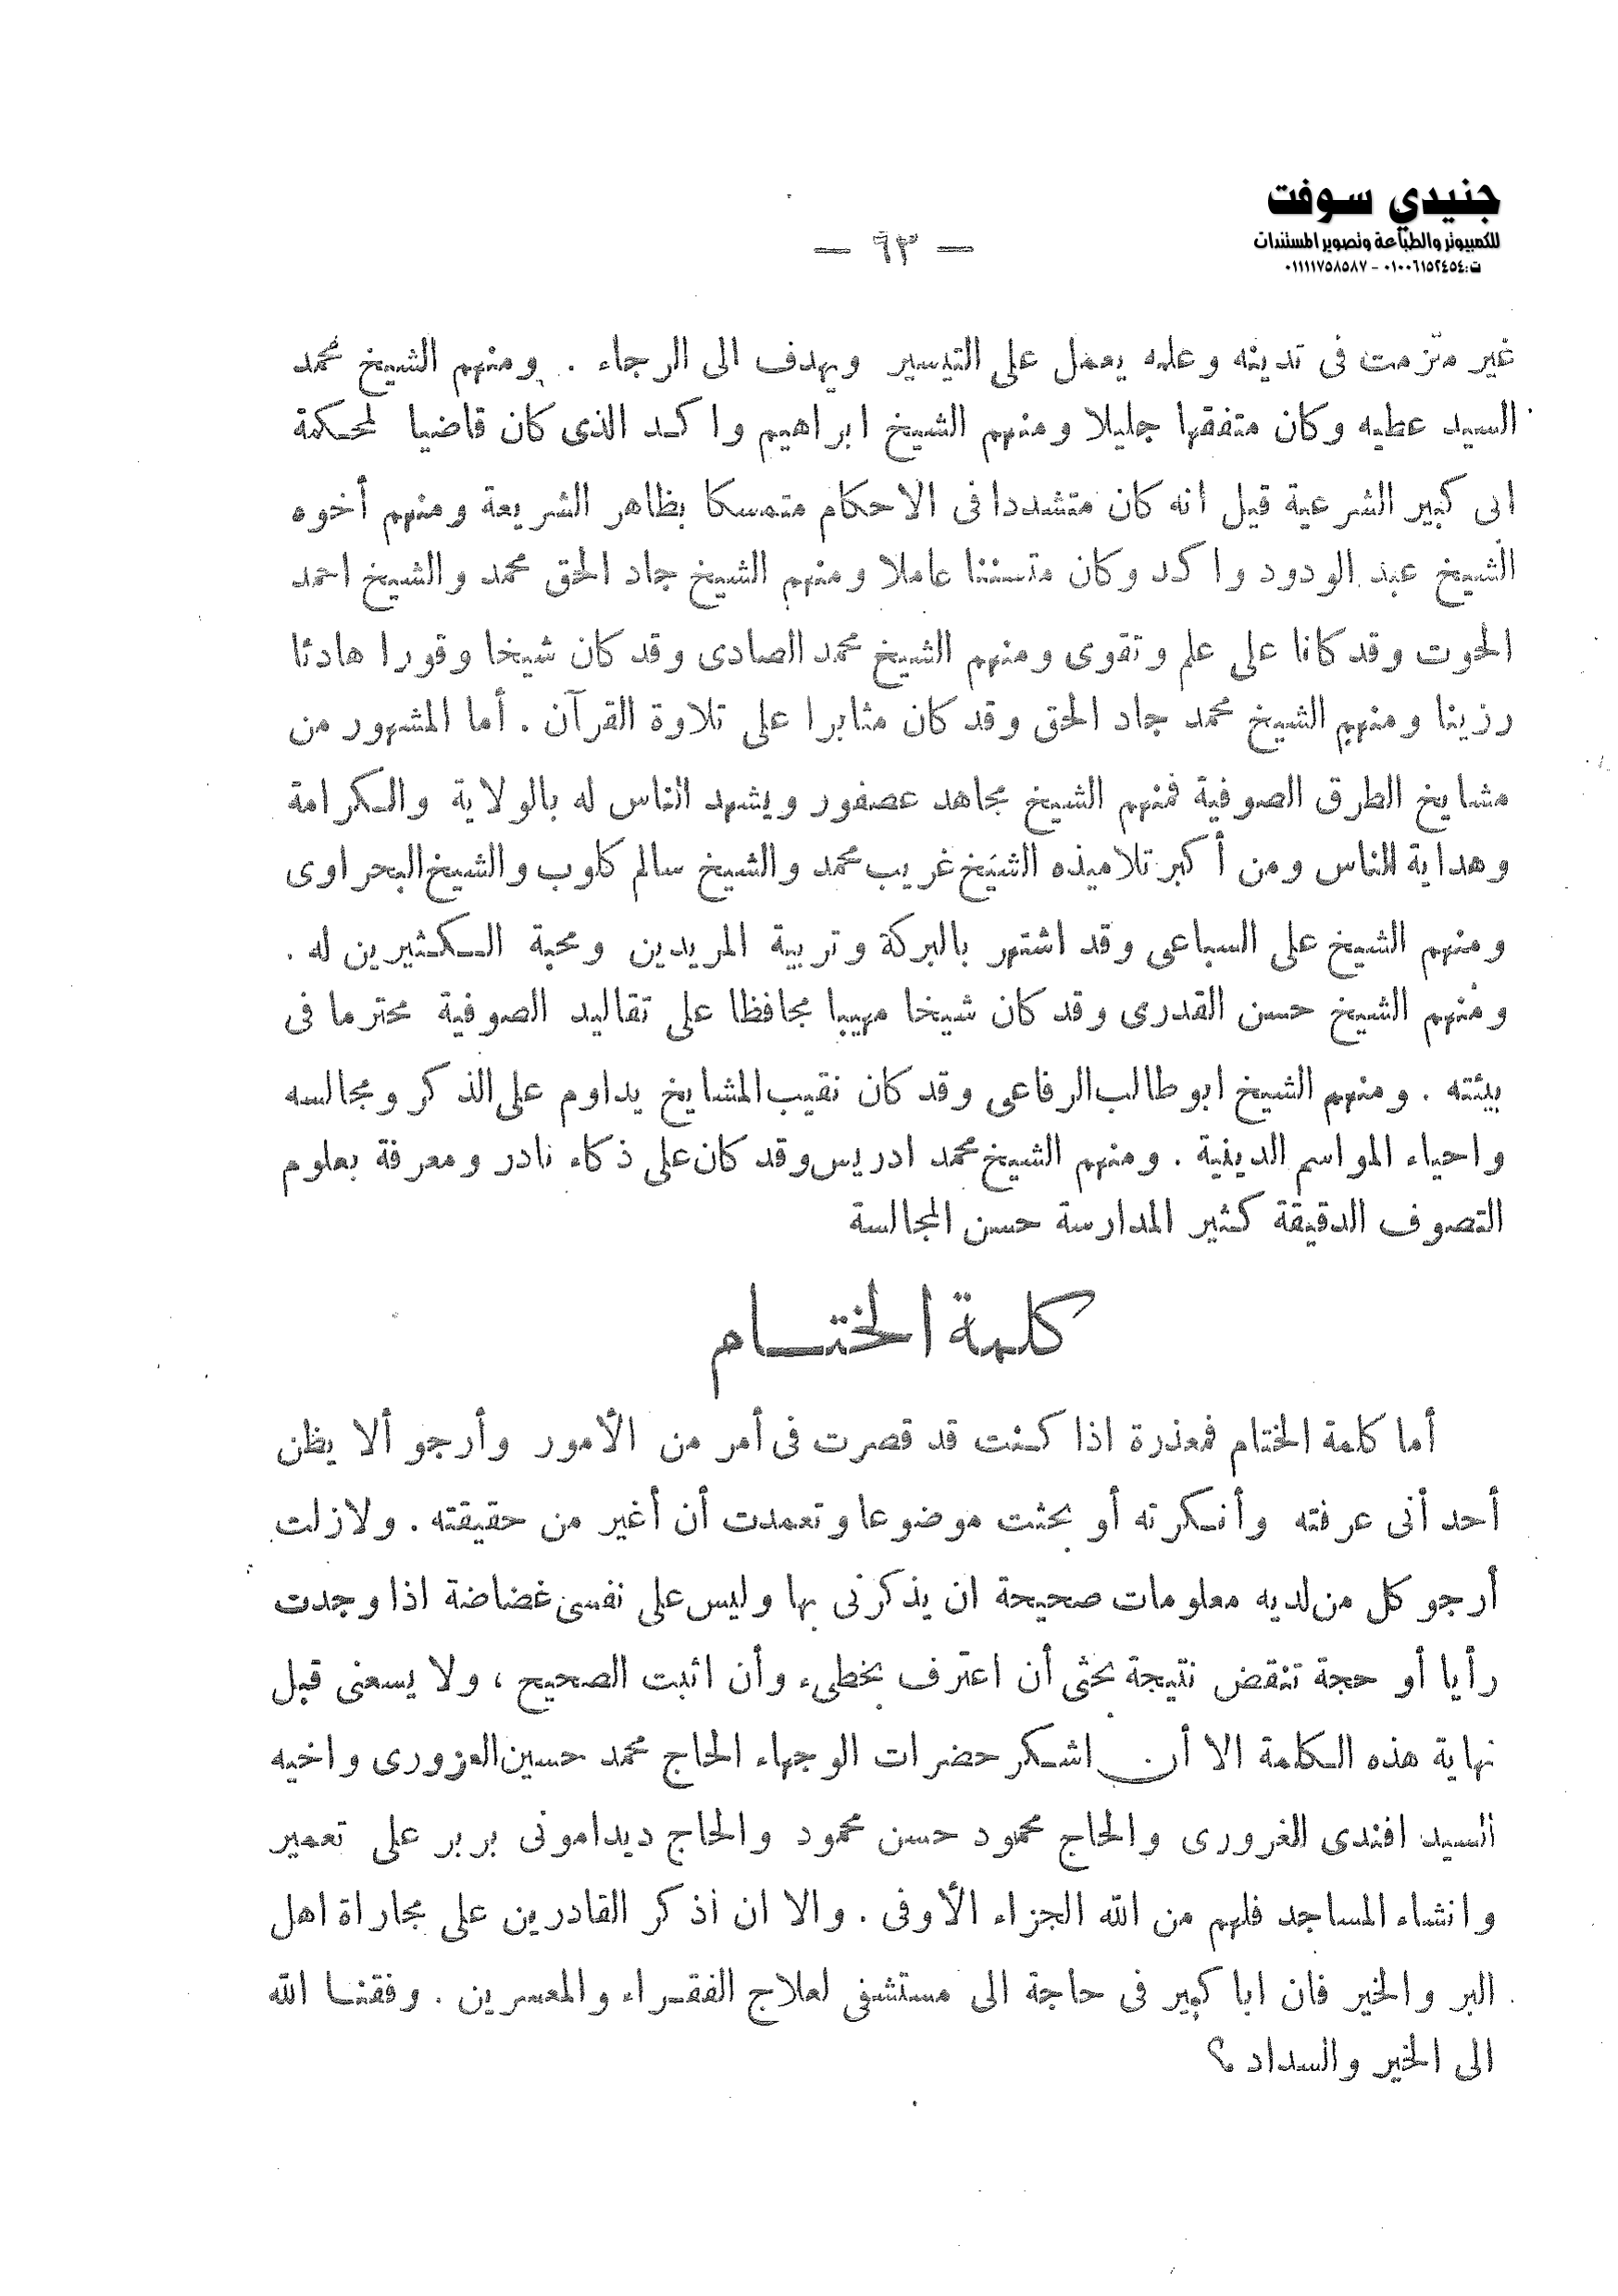 جنيدي سوفت
للكمبيوتر والطباعة وتصوير المستندات
ت:٠١٠٠٦١٥٢٤٥٤ - ٠١١١١٧٥٨٥٨٧
— ٩٣ —
غير متزمت فى تدينه وعلمه يعمل على التيسير ويهدف الى الرجاء . ومنهم الشيخ محمد
السيد عطيه وكان متفقها جليلا ومنهم الشيخ ابراهيم واكد الذى كان قاضيا لمحكمة
ابى كبير الشرعية قيل انه كان متشددا فى الاحكام متمسكا بظاهر الشريعة ومنهم أخوه
الشيخ عبد الودود واكد وكان متسننا عاملا ومنهم الشيخ جاد الحق محمد والشيخ احمد
الحوت وقد كانا على علم وتقوى ومنهم الشيخ محمد الصادى وقد كان شيخا وقورا هادئا
رزينا ومنهم الشيخ محمد جاد الحق وقد كان مثابرا على تلاوة القرآن . أما المشهور من
مشايخ الطرق الصوفية فمنهم الشيخ مجاهد عصفور ويشهد الناس له بالولاية والكرامة
وهداية للناس ومن أكبر تلاميذه الشيخ غريب محمد والشيخ سالم كلوب والشيخ البحراوى
ومنهم الشيخ على السباعى وقد اشتهر بالبركة وتربية المريدين ومحبة الكثيرين له .
ومنهم الشيخ حسن القدرى وقد كان شيخا مهيبا محافظا على تقاليد الصوفية محترما فى
بيئته . ومنهم الشيخ ابو طالب الرفاعى وقد كان نقيب المشايخ يداوم على الذكر ومجالسه
واحياء المواسم الدينية . ومنهم الشيخ محمد ادريس وقد كان على ذكاء نادر ومعرفة بعلوم
التصوف الدقيقة كثير المدارسة حسن المجالسة
كلمة الختام
أما كلمة الختام فمعذرة اذا كنت قد قصرت فى أمر من الأمور وأرجو ألا يظن
أحد أنى عرفته وأنكرته أو بحثت موضوعا وتعمدت أن أغير من حقيقته . ولازلت
أرجو كل من لديه معلومات صحيحة ان يذكرنى بها وليس على نفسى غضاضة اذا وجدت
رأيا أو حجة تنقض نتيجة بحثى أن اعترف بخطىء وأن اثبت الصحيح ، ولا يسعنى قبل
نهاية هذه الكلمة الا أن اشكر حضرات الوجهاء الحاج محمد حسين العزورى واخيه
السيد افندى الغرورى والحاج محمود حسن محمود والحاج ديدامونى بربر على تعمير
وانشاء المساجد فلهم من الله الجزاء الأوفى . والا ان أذكر القادرين على مجاراة اهل
البر والخير فان ابا كبير فى حاجة الى مستشفى لعلاج الفقراء والمعسرين . وفقنا الله
الى الخير والسداد ؟